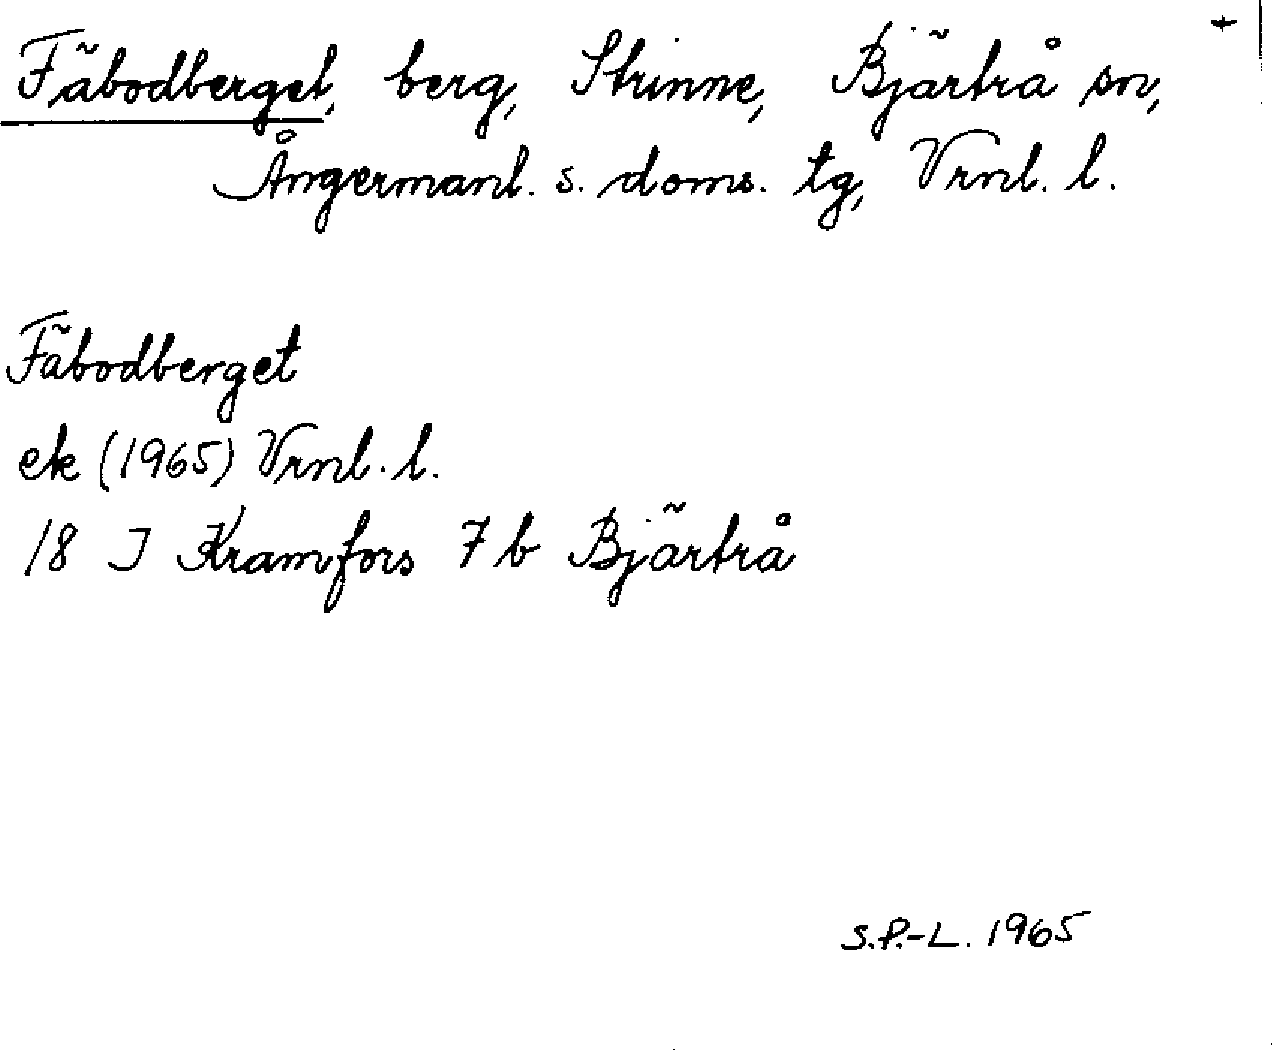 Fäbodberget, berg, Strinne, Bjärtrå sn,
Ångermanl. s. doms. tg, Vrnl. l.
Fäbodberget
ek (1965) Vrnl. l.
18 I Kramfors 7 b Bjärtrå
S.P.-L. 1965